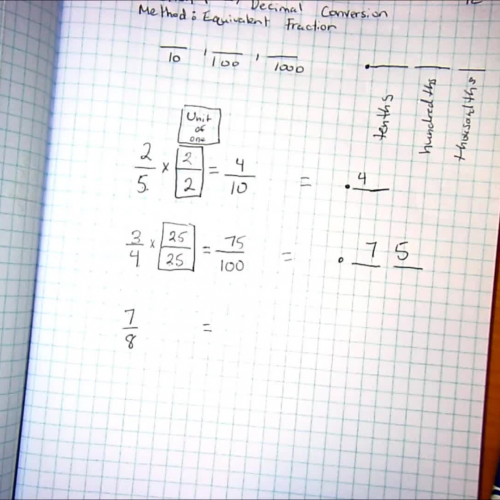 Decimal Conversion
Method: Equivalent Fraction
/10 , /100 , /1000
. __ __ __
tenths
hundredths
thousandths
Unit of one
2/5 × 2/2 = 4/10 = .4
3/4 × 25/25 = 75/100 = .75
7/8 =